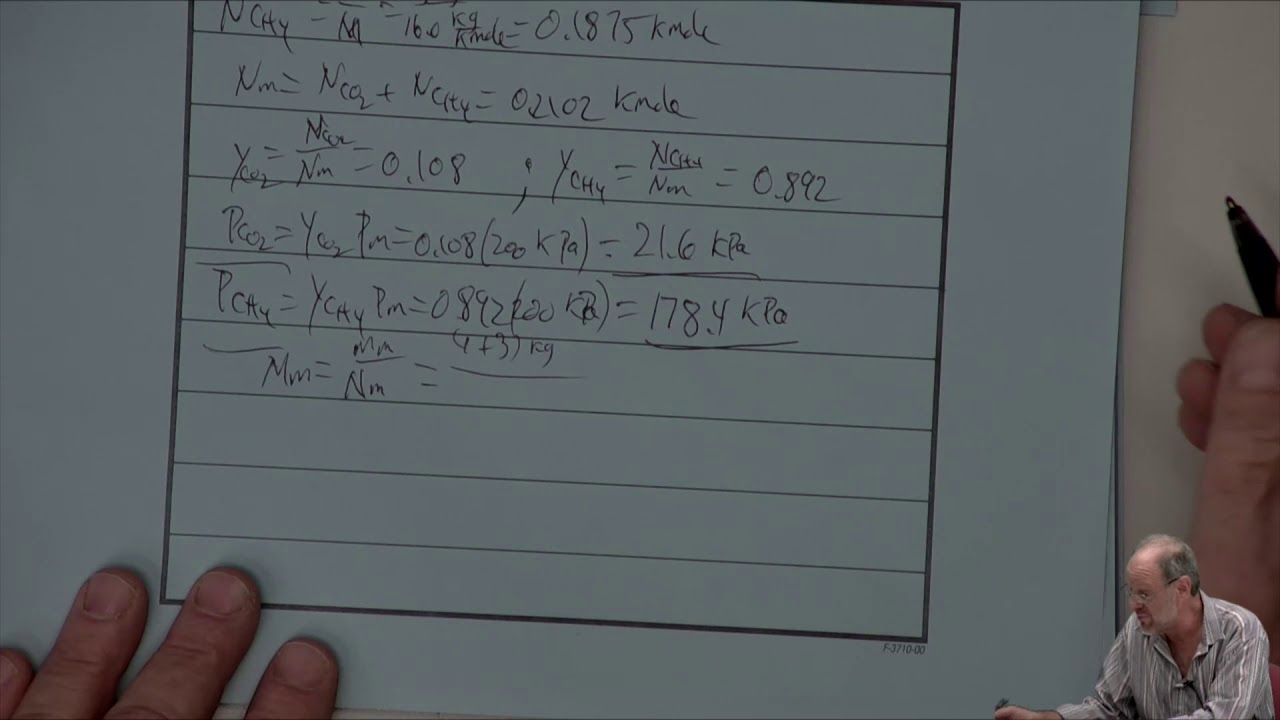 N_CH4 = m/M = 16.0 kg/kmole = 0.1875 kmole
Nm = N_CO2 + N_CH4 = 0.2102 kmole
y_CO2 = N_CO2/Nm = 0.108 ; y_CH4 = N_CH4/Nm = 0.892
P_CO2 = y_CO2 Pm = 0.108 (200 kPa) = 21.6 kPa
P_CH4 = y_CH4 Pm = 0.892 (200 kPa) = 178.4 kPa
Mm = mm/Nm = (1+3) kg
F-3710-00